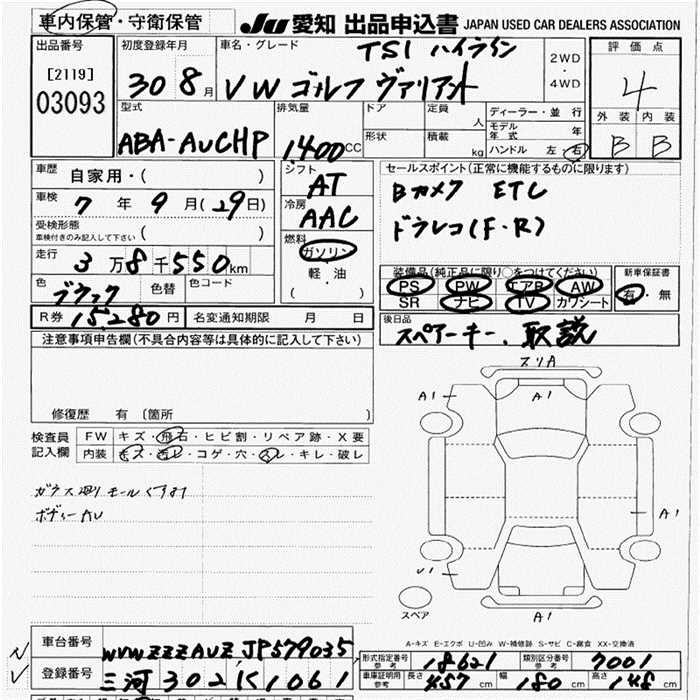 車内保管・守衛保管
JU 愛知 出品申込書 JAPAN USED CAR DEALERS ASSOCIATION
出品番号
[2119]
03093
初度登録年月
30 8月
車名・グレード
TSI ハイライン
VW ゴルフ ヴァリアント
2WD
・
4WD
評価点
4
外装 内装
B B
型式
ABA-AUCHP
排気量
1,400 CC
ドア
形状
定員 人
積載 kg
ディーラー・並行
モデル年式 年
ハンドル 左・右
車歴
自家用・( )
車検
7年 9月(29日)
受検形態
車検付きのみ記入して下さい ( )
走行
3万8千550km
色
ブラック
色替
色コード
R券 15,280円
名変通知期限 月 日
シフト
AT
冷房
AAC
燃料
ガソリン
軽・油
( )
セールスポイント(正常に機能するものに限ります)
Bカメラ ETC
ドラレコ(F・R)
装備品(純正品に限り○をつけてください)
PS PW エアB AW
SR ナビ TV カワシート
新車保証書
有・無
後日品
スペアーキー、取説
注意事項申告欄(不具合内容等は具体的に記入して下さい)
修復歴 有 〔箇所
検査員
記入欄
FW キズ・飛石・ヒビ割・リペア跡・X要
内装 キズ・汚レ・コゲ・穴・スレ・キレ・破レ
ガラス廻りモールくすみ
ボディーAU
スリA
A1
A1
A1
A1
U1
A1
スペア
A-キズ E-エクボ U-凹み W-補修跡 S-サビ C-腐食 XX-交換済
車台番号
WVWZZZAUZJP579035
登録番号
三河302 K1061
形式指定番号
参考
18621
類別区分番号
参考
7001
車庫証明用
参考
長さ 457cm
幅 180cm
高さ 148cm